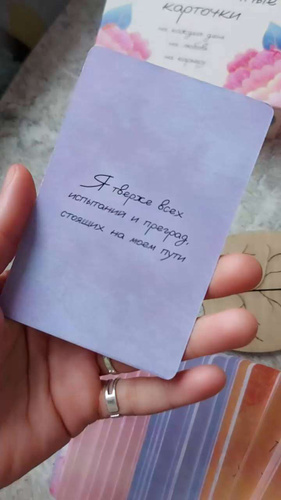 карточки
на каждый день
на любовь
на карьеру
Я тверже всех
испытаний и преград,
стоящих на моем пути